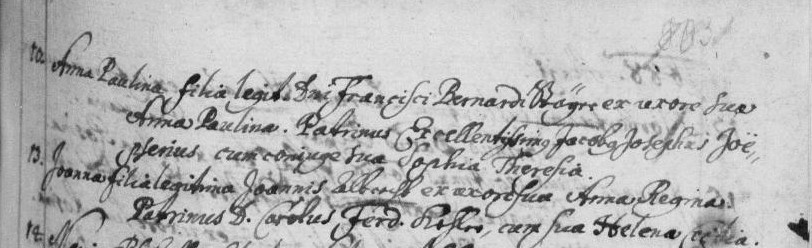 10. Anna Paulina filia legit. Dni Francisci Bernardi ex uxore sua
Anna Paulina. Patrinus Excellentissimq Jacobq Josephus Joë=
pserius cum coniuge sua Sophia Theresia.
13. Joanna filia legitima Joannis ex uxore sua Anna Regina.
Patrinus D. Carolus Ferd. cum sua Helena
14.